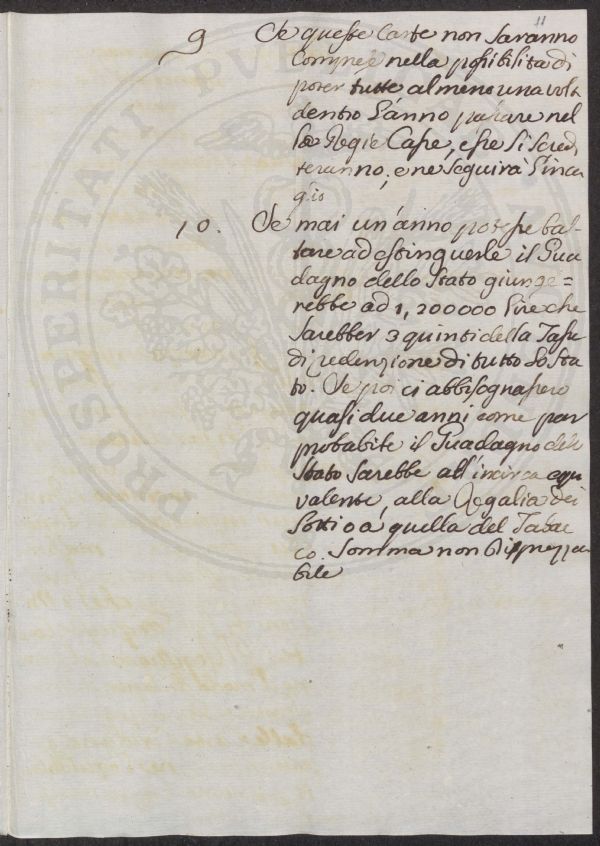 11
9 Se queste Carte non saranno
comprese nella possibilità di
poter tutte almeno una volta
dentro l'anno passare nel
le Regie Casse, esse si scredi
teranno, e ne seguirà l'inca
glio
10. Se mai un'anno potesse bas
tare ad estinguerle il Gua
dagno dello Stato giunge=
rebbe ad 1,200000 Lire che
sarebber 3 quinti della Tassa
di redenzione di tutto lo Sta
to. Se poi ci abbisognassero
quasi due anni come par
probabile il Guadagno dello
Stato sarebbe all'incirca equi
valente alla Regalia dei
Lotti o a quella del Tabac
co. Somma non disprezza
bile
PROSPERITATI PUBLICAE